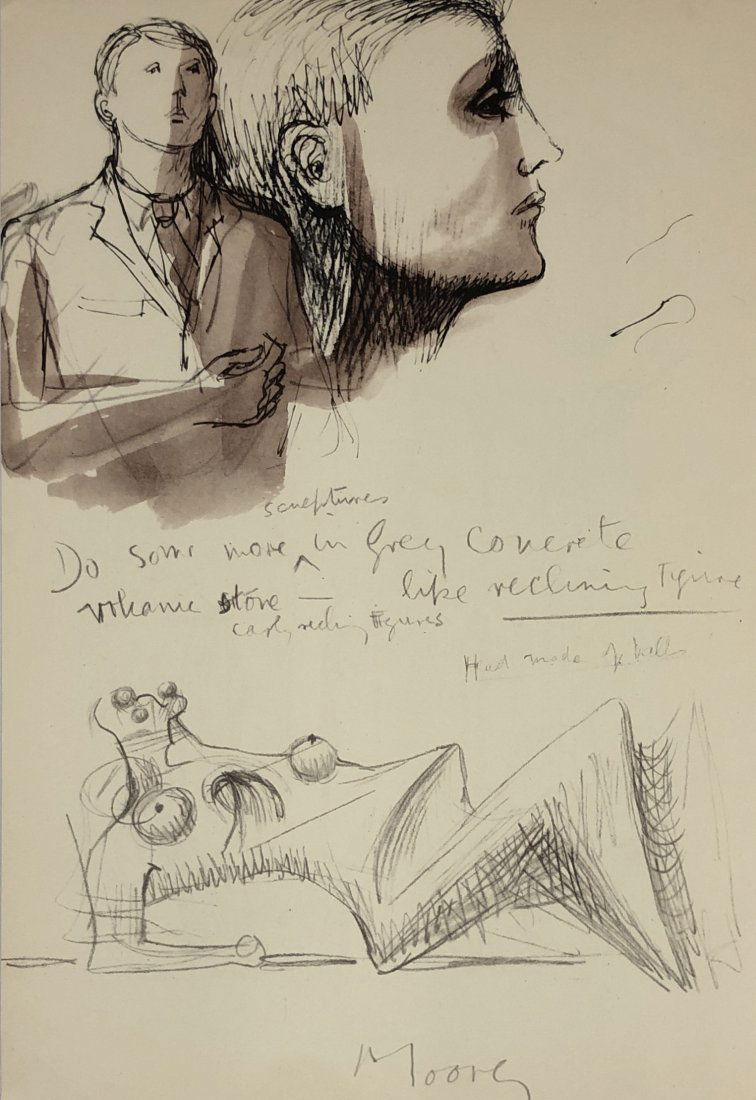 sculptures
Do some more ^ in Grey Concrete
volcanic stone — like reclining Figure
early reclining figures
Head made of balls
Moore